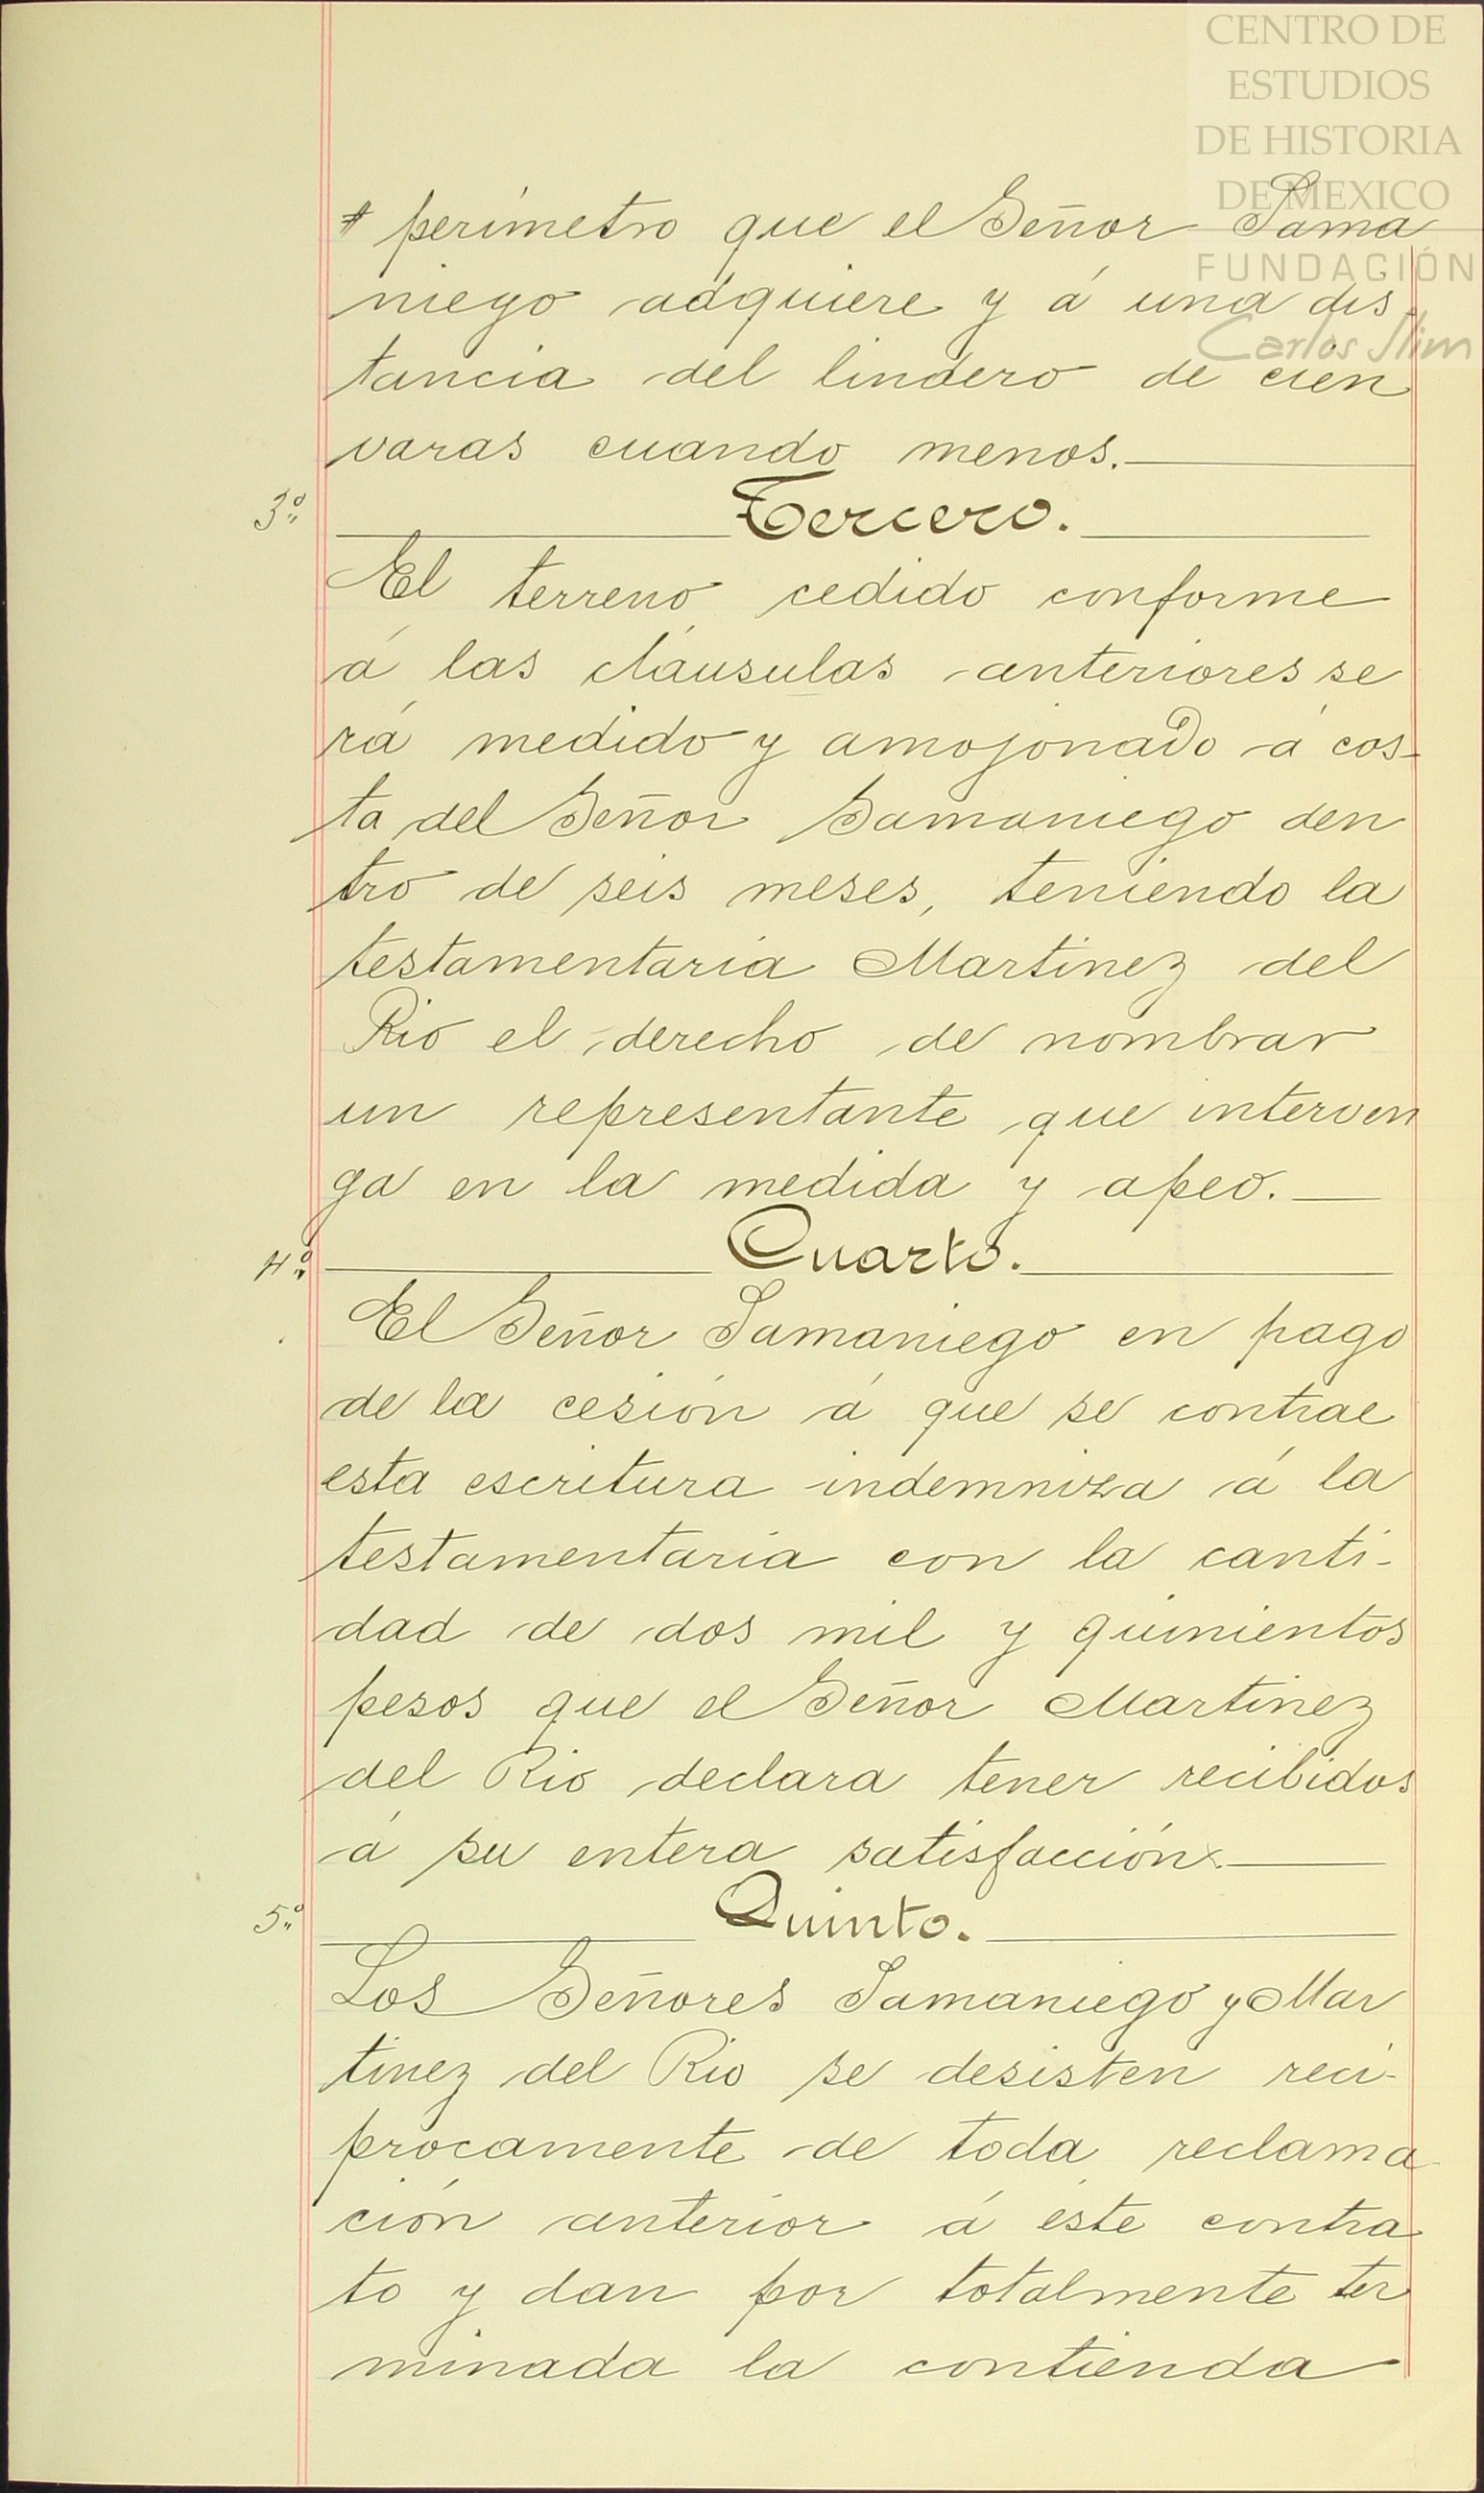 CENTRO DE
ESTUDIOS
DE HISTORIA
DE MEXICO
FUNDACIÓN
Carlos Slim
# perímetro que el Señor Sama
niego adquiere y á una dis
tancia del lindero de cien
varas cuando menos.
3º Tercero.
El terreno cedido conforme
á las cláusulas anteriores se
rá medido y amojonado á cos-
ta del Señor Samaniego den
tro de seis meses, teniendo la
testamentaría Martinez del
Rio el derecho de nombrar
un representante que interven
ga en la medida y apeo.
4º Cuarto.
El Señor Samaniego en pago
de la cesión á que se contrae
esta escritura indemniza á la
testamentaría con la canti-
dad de dos mil y quinientos
pesos que el Señor Martinez
del Rio declara tener recibidos
á su entera satisfacción.
5º Quinto.
Los Señores Samaniego y Mar
tinez del Rio se desisten reci-
procamente de toda reclama
ción anterior á éste contra
to y dan por totalmente ter
minada la contienda